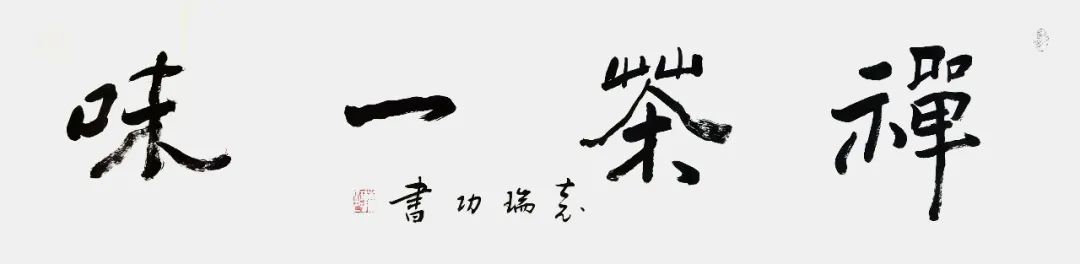 禪茶一味
袁瑞功書